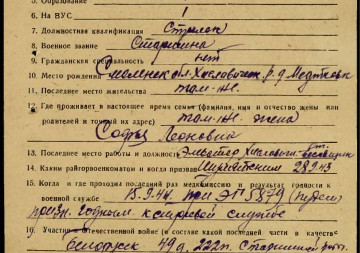 5. Образование
6. На ВУС 1
7. Должностная квалификация Стрелок
8. Военное звание Старшина
9. Гражданская специальность нет
10. Место рождения Смоленск обл. Хиславичск. р.
11. Последнее место жительства там-же
12. Где проживает в настоящее время семья (фамилия, имя и отчество жены или
родителей и точный их адрес) там-же жена
Софья Леоновна
13. Последнее место работы и должность
14. Каким райгорвоенкоматом и когда призван
15. Когда и где проходил последний раз медкомиссию и результат годности к
военной службе 15.9.44. при ЭГ 5879
призн. годным к строевой службе
16. Участие в Отечественной войне (в составе какой последней части в качестве
49 а. 222 п. Старшиной роты